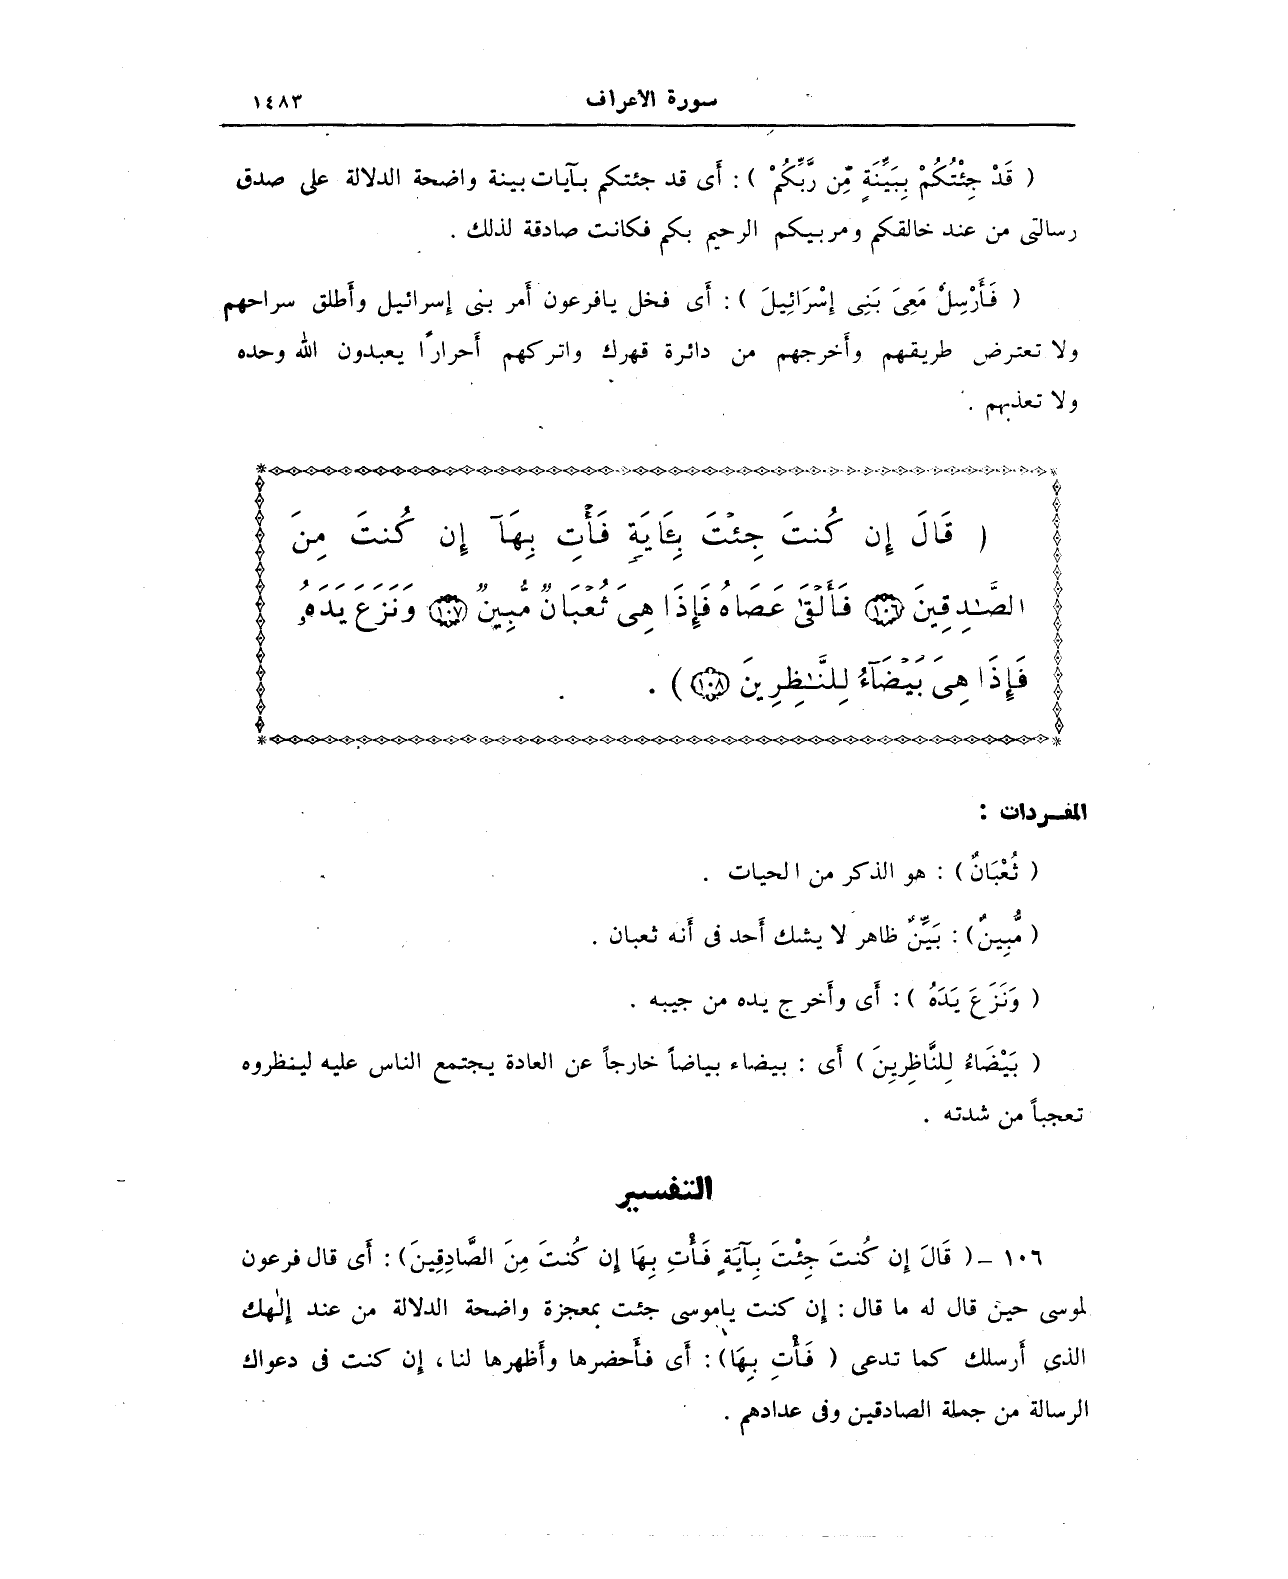 سورة الاعراف ١٤٨٣
( قَدْ جِئْتُكُمْ بِبَيِّنَةٍ مِّن رَّبِّكُمْ ) : أَى قد جئتكم بآيات بينة واضحة الدلالة على صدق
رسالتى من عند خالقكم ومربيكم الرحيم بكم فكانت صادقة لذلك .
( فَأَرْسِلْ مَعِىَ بَنِى إِسْرَائِيلَ ) : أَى فخل يافرعون أمر بنى إسرائيل وأطلق سراحهم
ولا تعترض طريقهم وأخرجهم من دائرة قهرك واتركهم أحرارًا يعبدون الله وحده
ولا تعذبهم .
( قَالَ إِن كُنتَ جِئْتَ بِـَٔايَةٍ فَأْتِ بِهَآ إِن كُنتَ مِنَ
الصَّـٰدِقِينَ ١٠٦ فَأَلْقَىٰ عَصَاهُ فَإِذَا هِىَ ثُعْبَانٌ مُّبِينٌ ١٠٧ وَنَزَعَ يَدَهُۥ
فَإِذَا هِىَ بَيْضَآءُ لِلنَّـٰظِرِينَ ١٠٨ ) .
المفـردات :
( ثُعْبَانٌ ) : هو الذكر من الحيات .
( مُّبِينٌ ) : بَيِّنٌ ظاهر لا يشك أحد فى أنه ثعبان .
( وَنَزَعَ يَدَهُ ) : أَى وأخرج يده من جيبه .
( بَيْضَاءُ لِلنَّاظِرِينَ ) أَى : بيضاء بياضاً خارجاً عن العادة يجتمع الناس عليه لينظروه
تعجباً من شدته .
التفسير
١٠٦ - ( قَالَ إِن كُنتَ جِئْتَ بِآيَةٍ فَأْتِ بِهَا إِن كُنتَ مِنَ الصَّادِقِينَ ) : أَى قال فرعون
لموسى حين قال له ما قال : إن كنت ياموسى جئت بمعجزة واضحة الدلالة من عند إلٰهك
الذي أرسلك كما تدعى ( فَأْتِ بِهَا ) : أَى فأحضرها وأظهرها لنا ، إن كنت فى دعواك
الرسالة من جملة الصادقين وفى عدادهم .